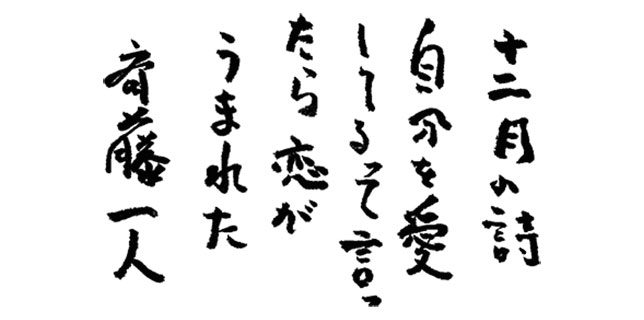 十二月の詩
自分を愛
してるって言っ
たら恋が
うまれた
斉藤一人